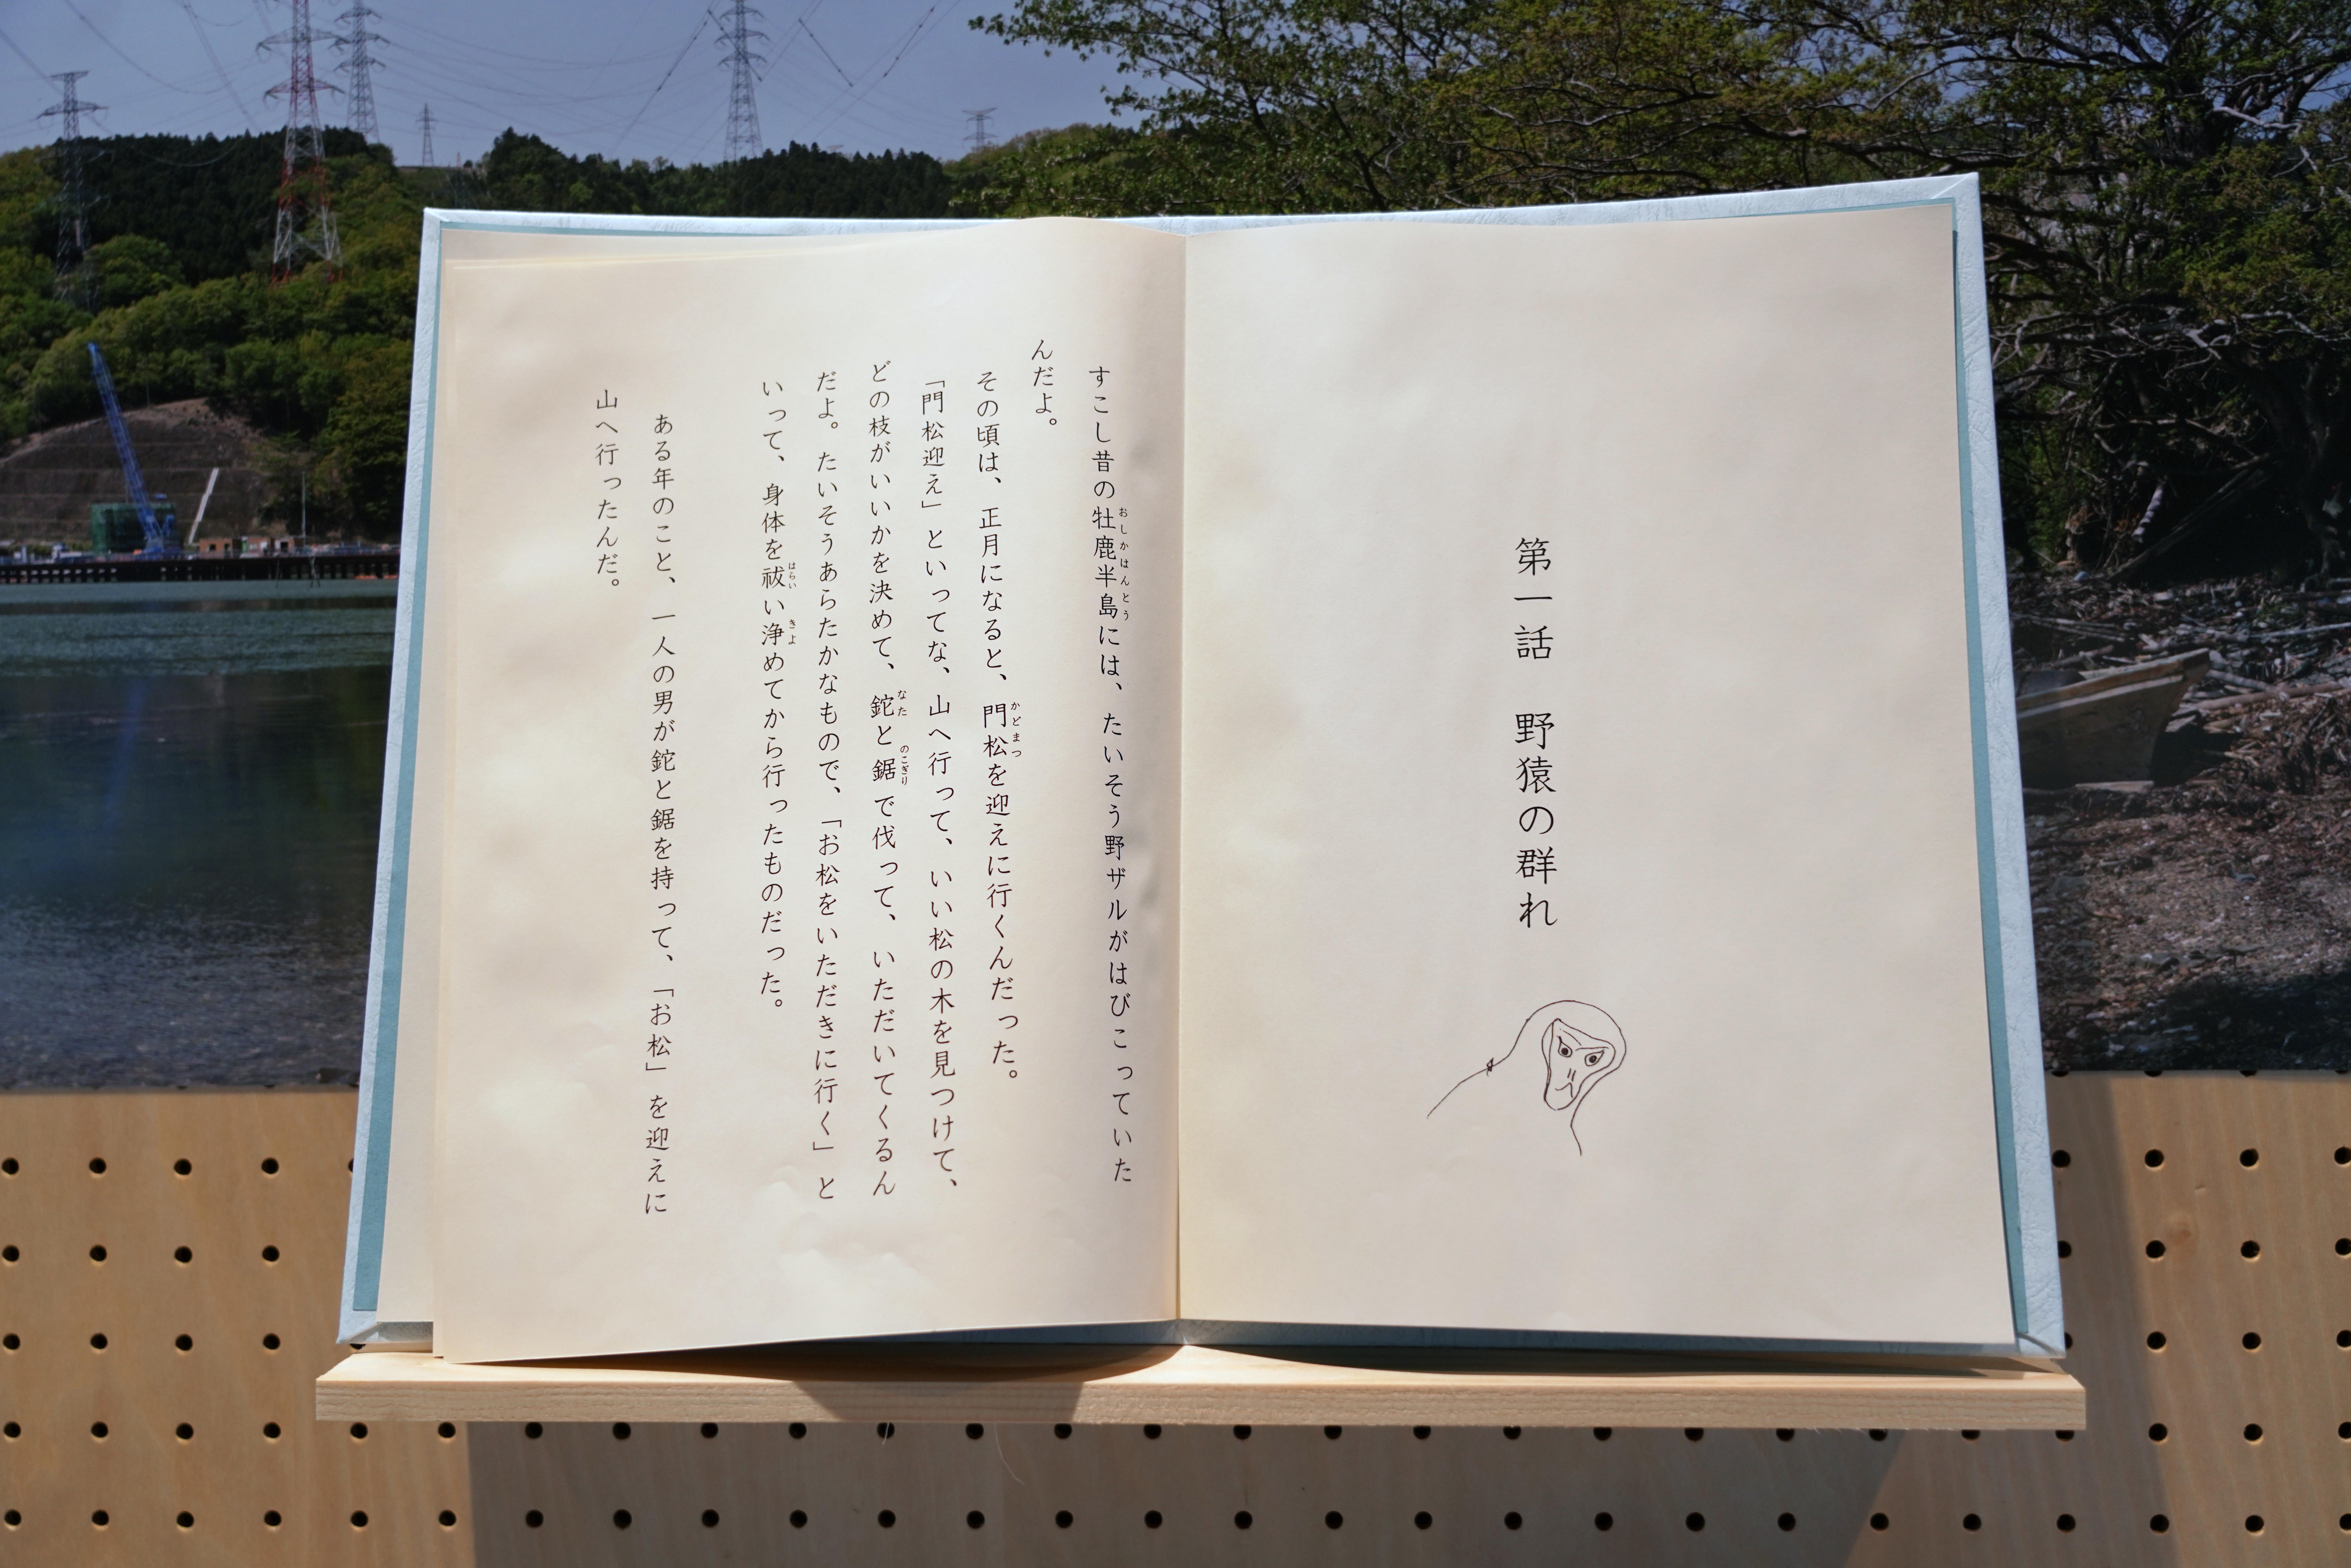 第一話　野猿の群れ
すこし昔の牡鹿半島には、たいそう野ザルがはびこっていた
おしかはんとう
んだよ。
その頃は、正月になると、門松を迎えに行くんだった。
かどまつ
「門松迎え」といってな、山へ行って、いい松の木を見つけて、
どの枝がいいかを決めて、鉈と鋸で伐って、いただいてくるん
なた
のこぎり
だよ。たいそうあらたかなもので、「お松をいただきに行く」と
いって、身体を祓い浄めてから行ったものだった。
はらい
きよ
ある年のこと、一人の男が鉈と鋸を持って、「お松」を迎えに
山へ行ったんだ。